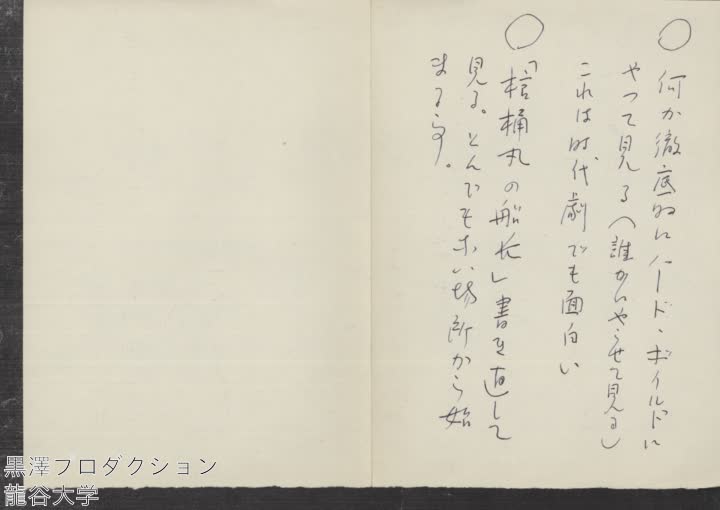 ○ 何か徹底的にハード・ボイルドに
やって見る(誰かにやらせて見る)
これは时代劇でも面白い
○ 「棺桶丸の船長」書き直して
見る。とんでもない場所から始
まる事。
黒澤プロダクション
龍谷大学